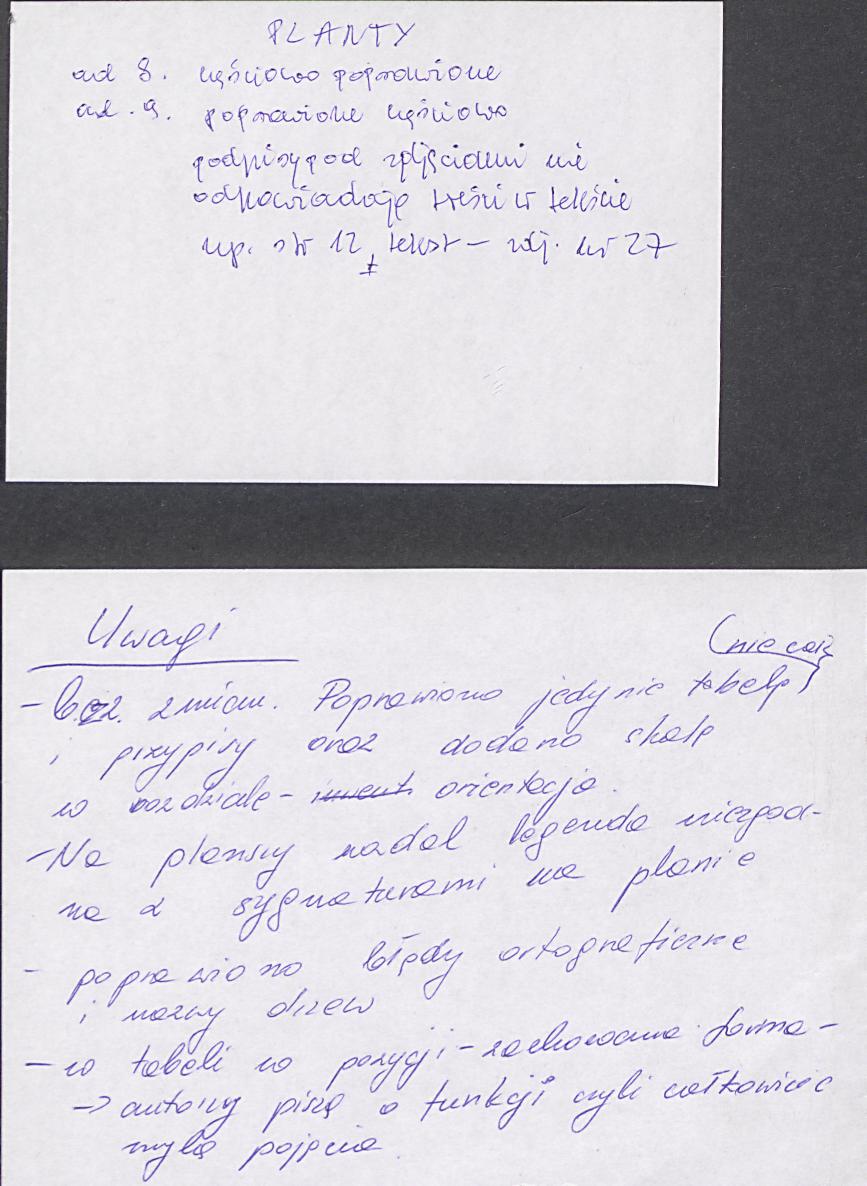 PLANTY
ad 8. częściowo poprawione
ad. 9. poprawione częściowo
podpisy pod zdjęciami nie
odpowiadają treści w tekście
np. str 12 ł tekst – zdj. nr 27
Uwagi
(nie całą)
- bez. zmian. Poprawiono jedynie tabelę
i przypisy oraz dodano skalę
w rozdziale - inwent. orientacja.
- Na planszy nadal legenda niezgod-
na z sygnaturami na planie
- poprawiono błędy ortograficzne
i nazwy drzew
- w tabeli w pozycji - zachowana forma -
-> autorzy piszą o funkcji czyli całkowicie
mylą pojęcia.